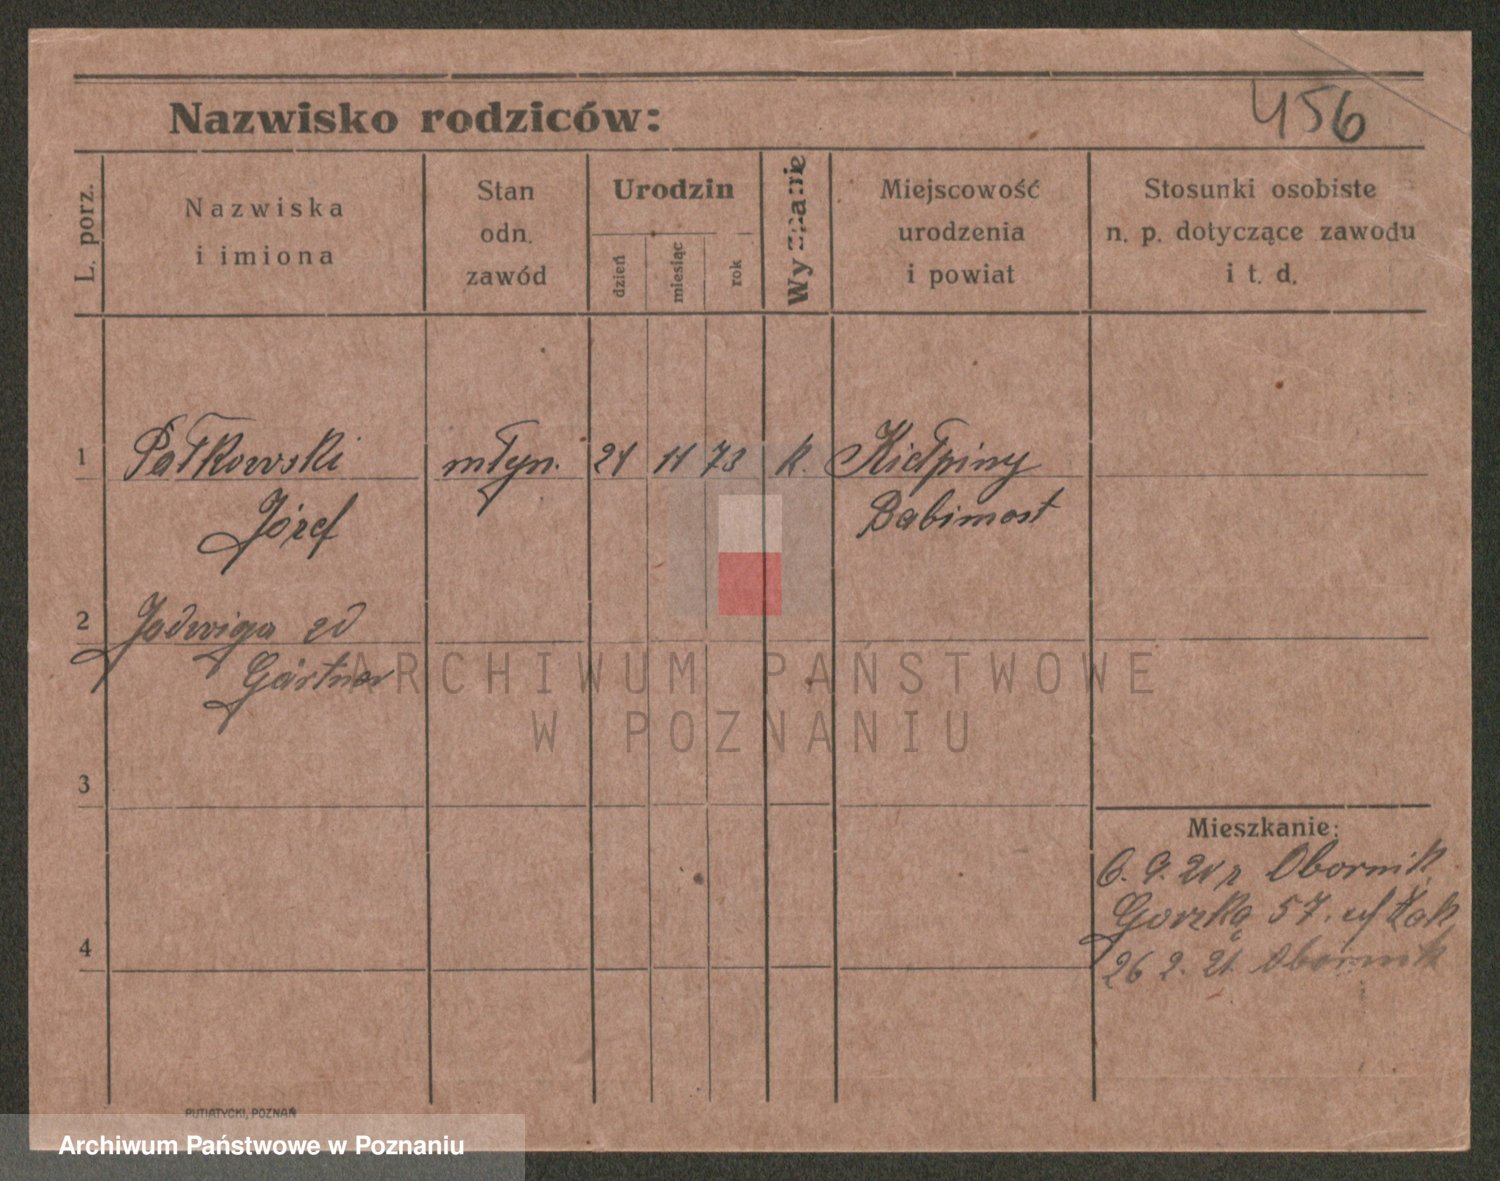 Nazwisko rodziców:
456
L. porz.
Nazwiska
i imiona
Stan
odn.
zawód
Urodzin
dzień
miesiąc
rok
Wyznanie
Miejscowość
urodzenia
i powiat
Stosunki osobiste
n. p. dotyczące zawodu
i t. d.
1 Pałkowski młyn. 21 11 73 k. Kiełpiny
Józef Babimost
2 Jadwiga zd
Gärtner
ARCHIWUM PAŃSTWOWE
W POZNANIU
3
Mieszkanie:
6. 9. 20 z Obornik
57.
4
26 2. 21. Obornik
PUTIATYCKI, POZNAŃ
Archiwum Państwowe w Poznaniu